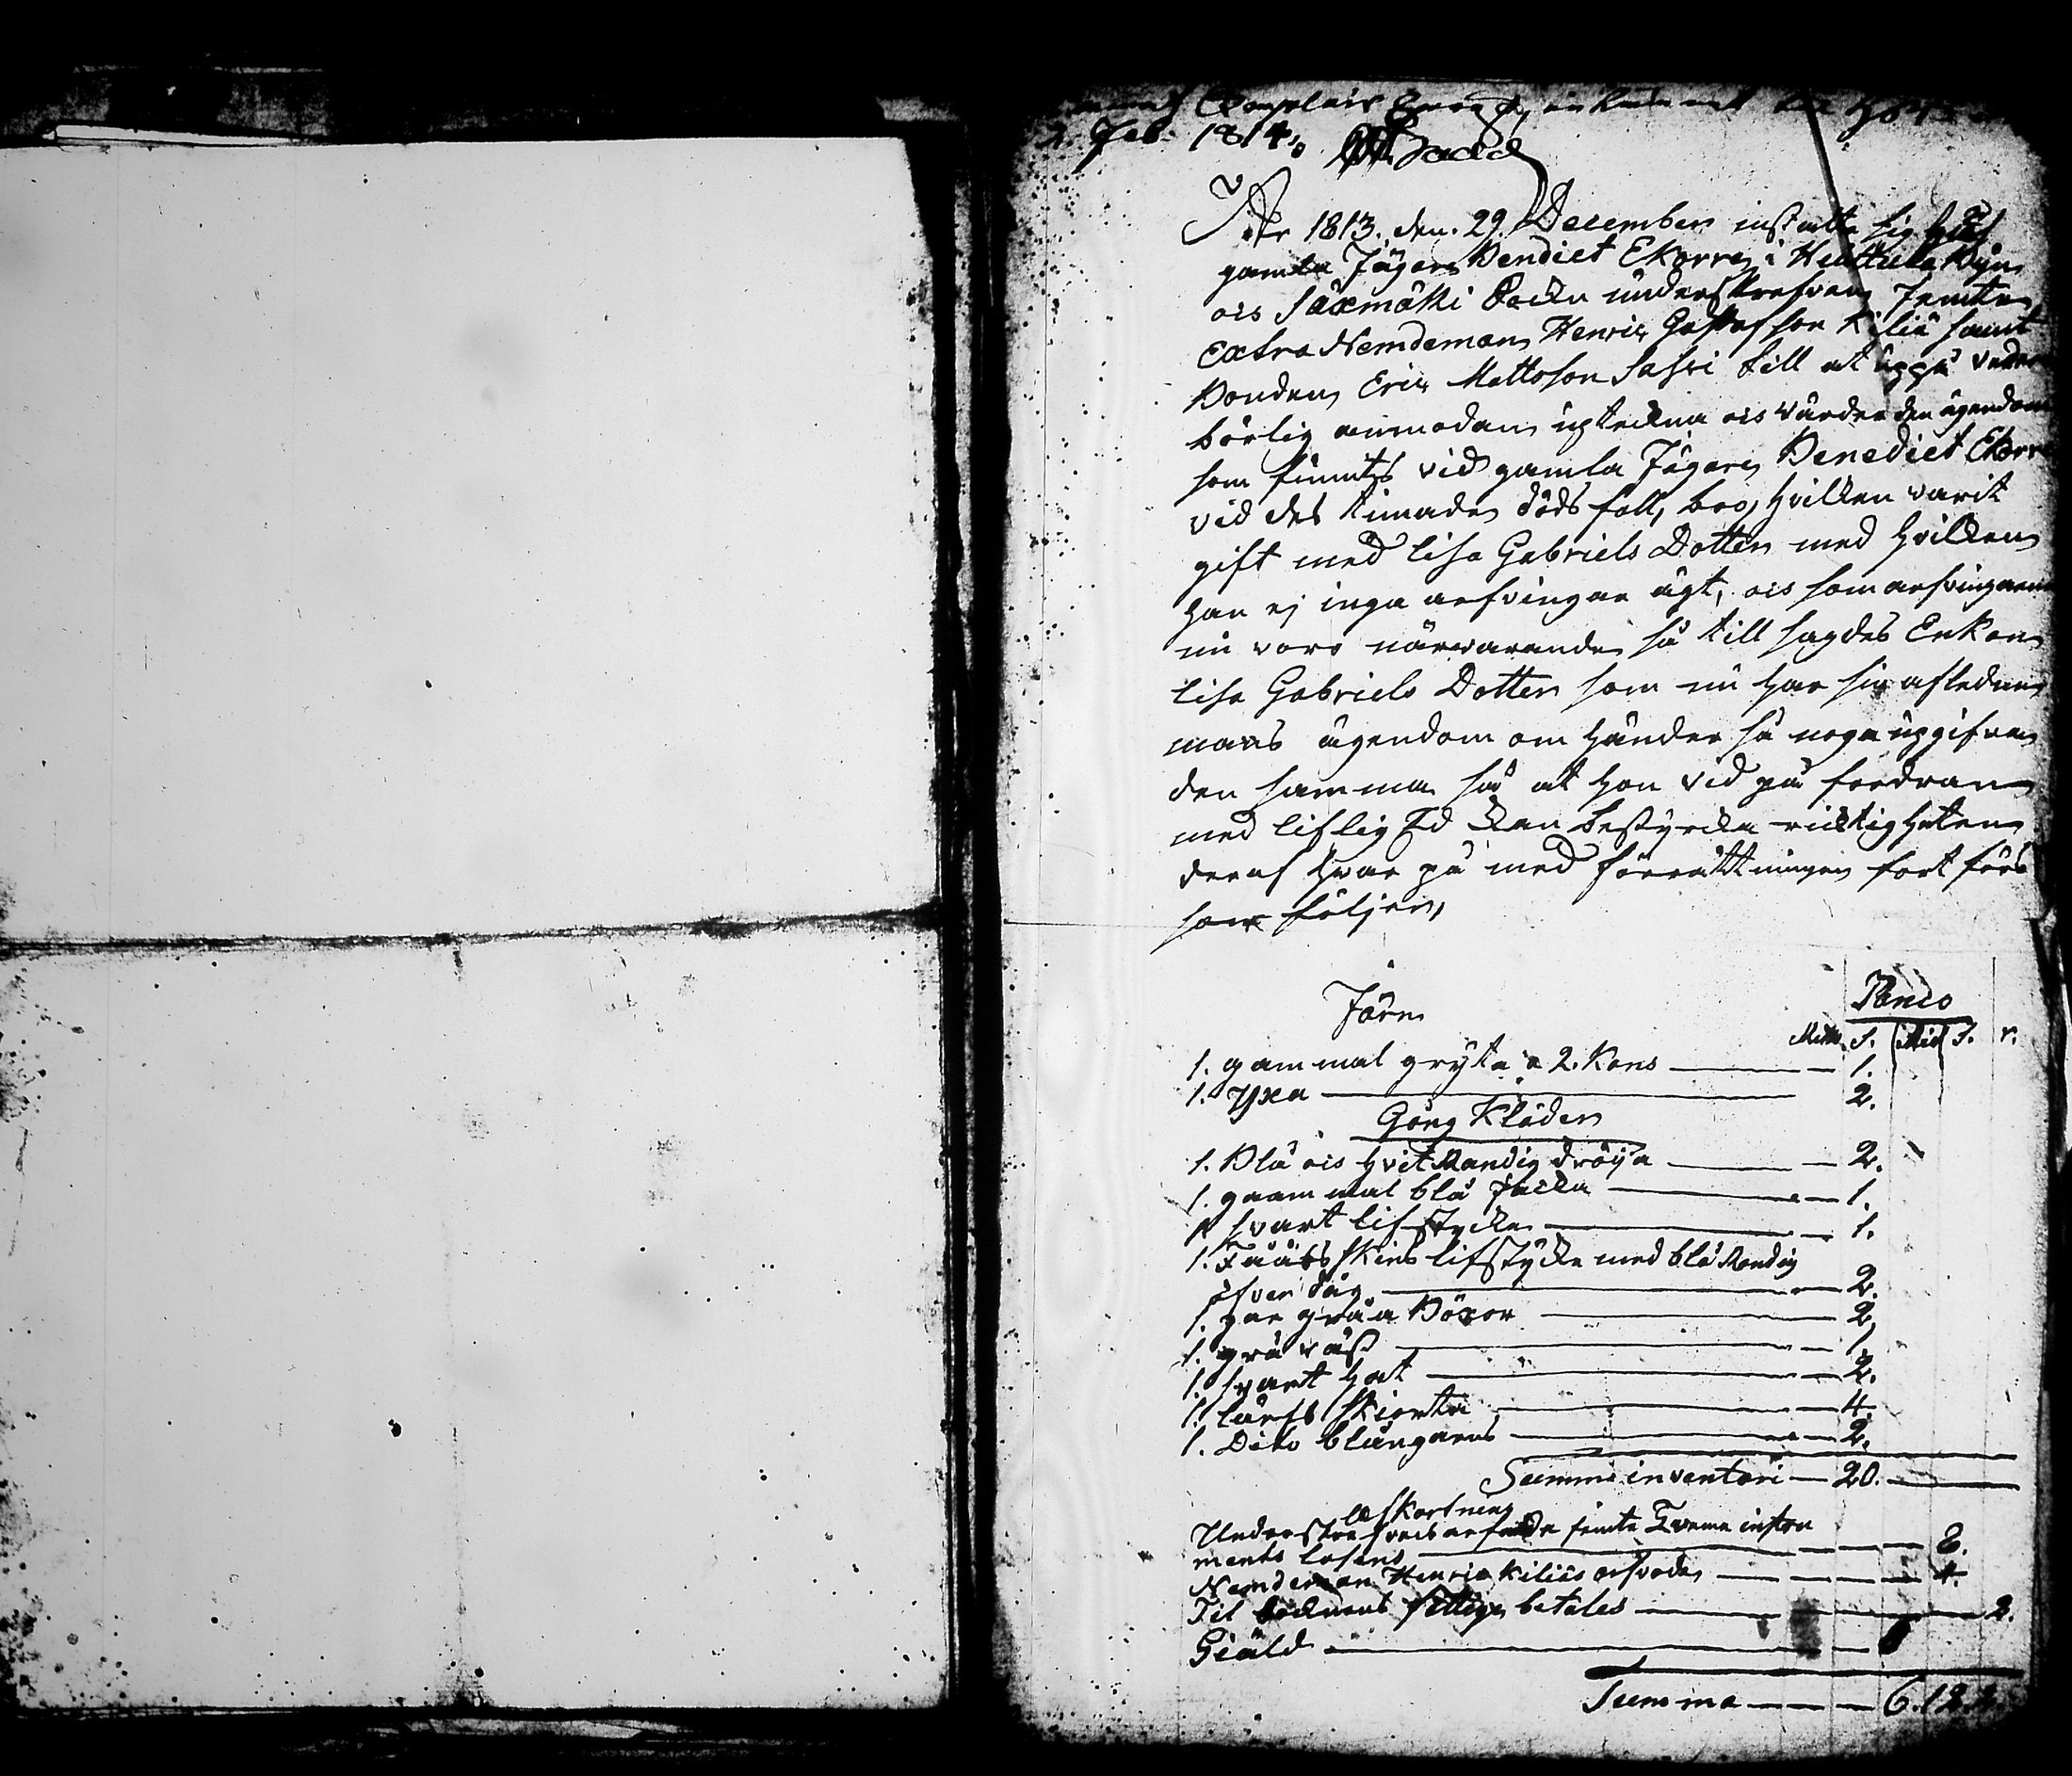 Exemplair
Feb. 1814.
År 1813. den. 29. December instälte sig hos
gamla Jägare Bendict Ekorre i Huittula Byn
ois Säxmäki Sockn underskrefven Jemte
Extra Nemdeman Henric Gustafson Kiliä samt
Bonden Eric Mattsson Sassi till at uppå veder
börlig anmodan upteckna ois värdera den ägendom
som finnits vid gamla Jägare Benedict Ekorre
vid des timade dödsfall, boo, hvilken varit
gift med Lisa Gabriels Dotter med hvilken
han ej inga arfvingar ägt, ois som arfvingarne
nu voro närvarande så till sagdes Enkan
Lisa Gabriels Dotter som nu har sin aflednes
mans ägendom om händer så noga upgifva
den samma så at hon vid på fordran
med liflig Ed kan bestyrcka ricktigheten
deraf hvar på med förrättningen fort förs
som följer,
Järn
Banco
S. S. r.
1. gammal gryta a 2. Kans — 1.
1. Yxa — 2.
Gång Kläder
1. Blå ois hvit Randig dröija — 2.
1. gaammal blå Jacka — 1.
1 svart lifstycke — 1.
1. Fåårs skins lifstycke med blå Randig
öfver tåg — 2.
1. par gråa Böxor — 2.
1. grå väst — 1.
1. svart hat — 2.
1. lärfts skiorta — 4.
1. Dito blångarns — 2.
Summa inventari — 20.
Afskortning
Underskrefvens arfvode jemte Tvenne instru
ments lösens — 8.
Nemdeman Henric Kiliäs arfvode — 4.
Til Socknens fattige betales — 2.
Giäld — 6
Summa — 6. 12. 2